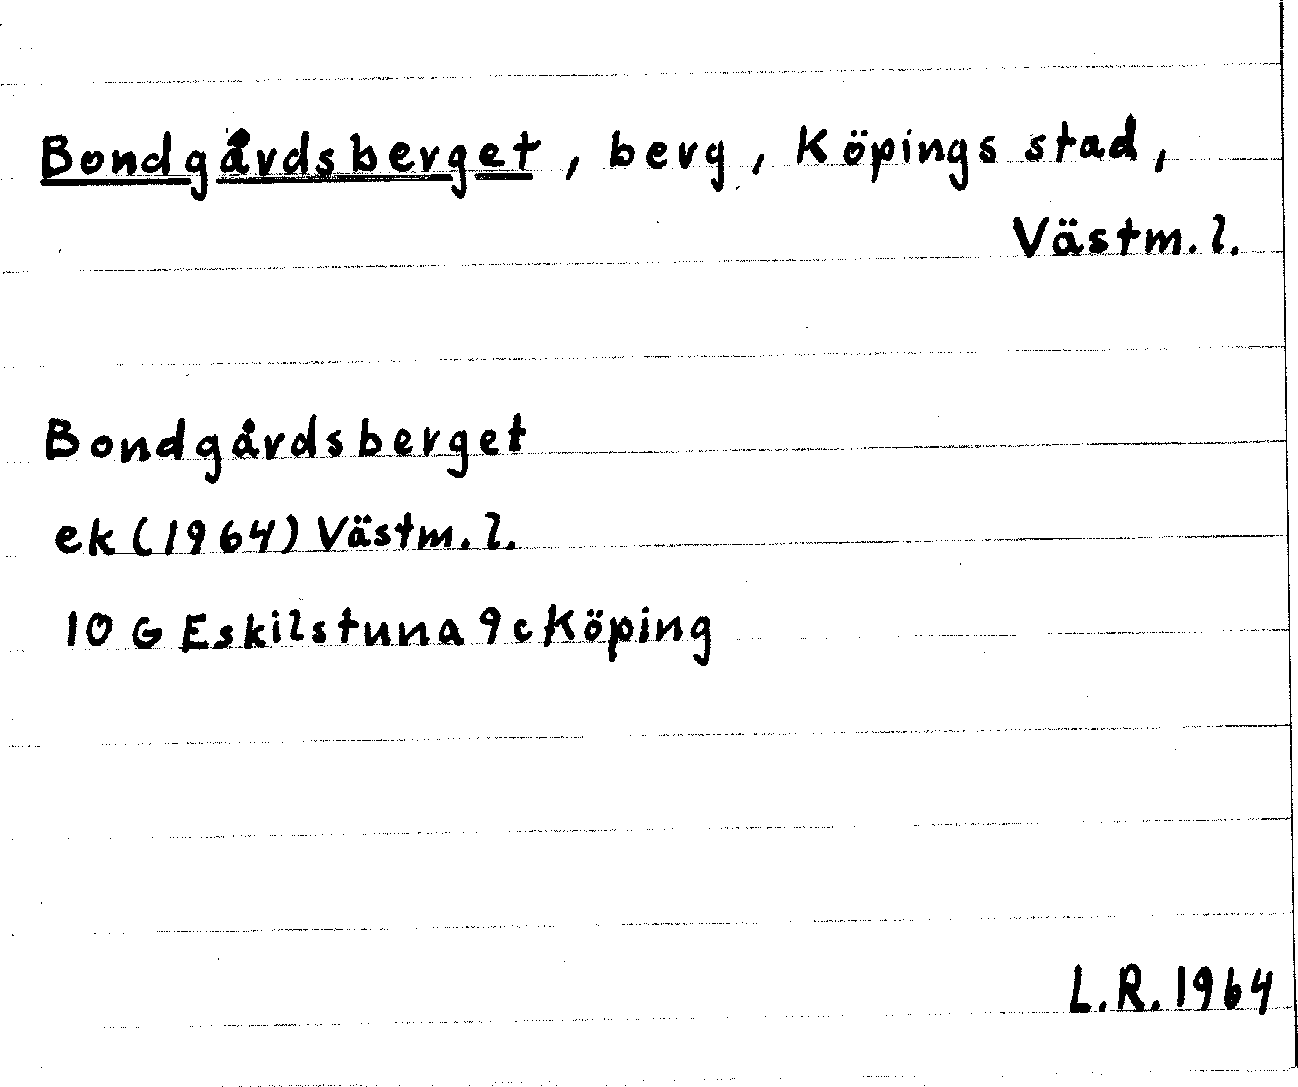 Bondgårdsberget, berg, Köpings stad,
Västm. l.
Bondgårdsberget
ek (1964) Västm. l.
10 G Eskilstuna 9c Köping
L.R. 1964